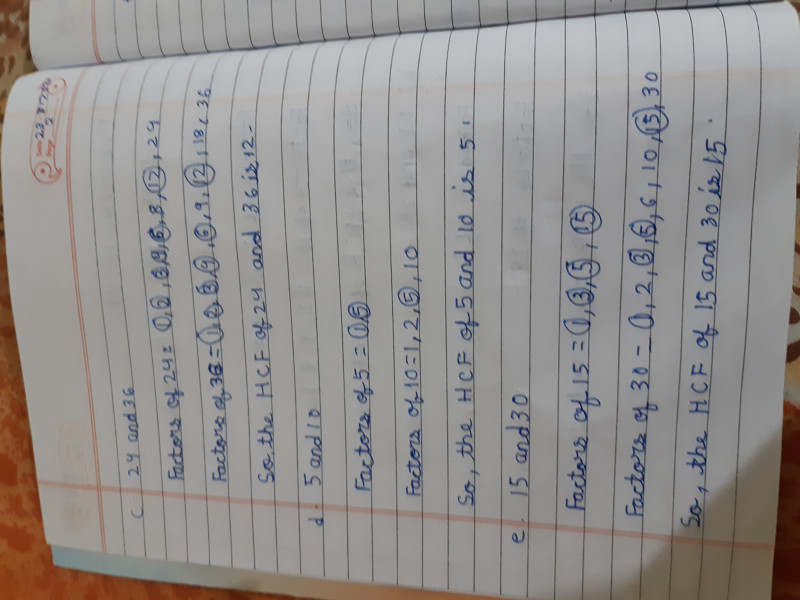 c. 24 and 36
Factors of 24 = 1, 2, 3, 4, 6, 8, 12, 24
Factors of 36 = 1, 2, 3, 4, 6, 9, 12, 18, 36
So, the HCF of 24 and 36 is 12.
d. 5 and 10
Factors of 5 = 1, 5
Factors of 10 = 1, 2, 5, 10
So, the HCF of 5 and 10 is 5.
e. 15 and 30
Factors of 15 = 1, 3, 5, 15
Factors of 30 = 1, 2, 3, 5, 6, 10, 15, 30
So, the HCF of 15 and 30 is 15.